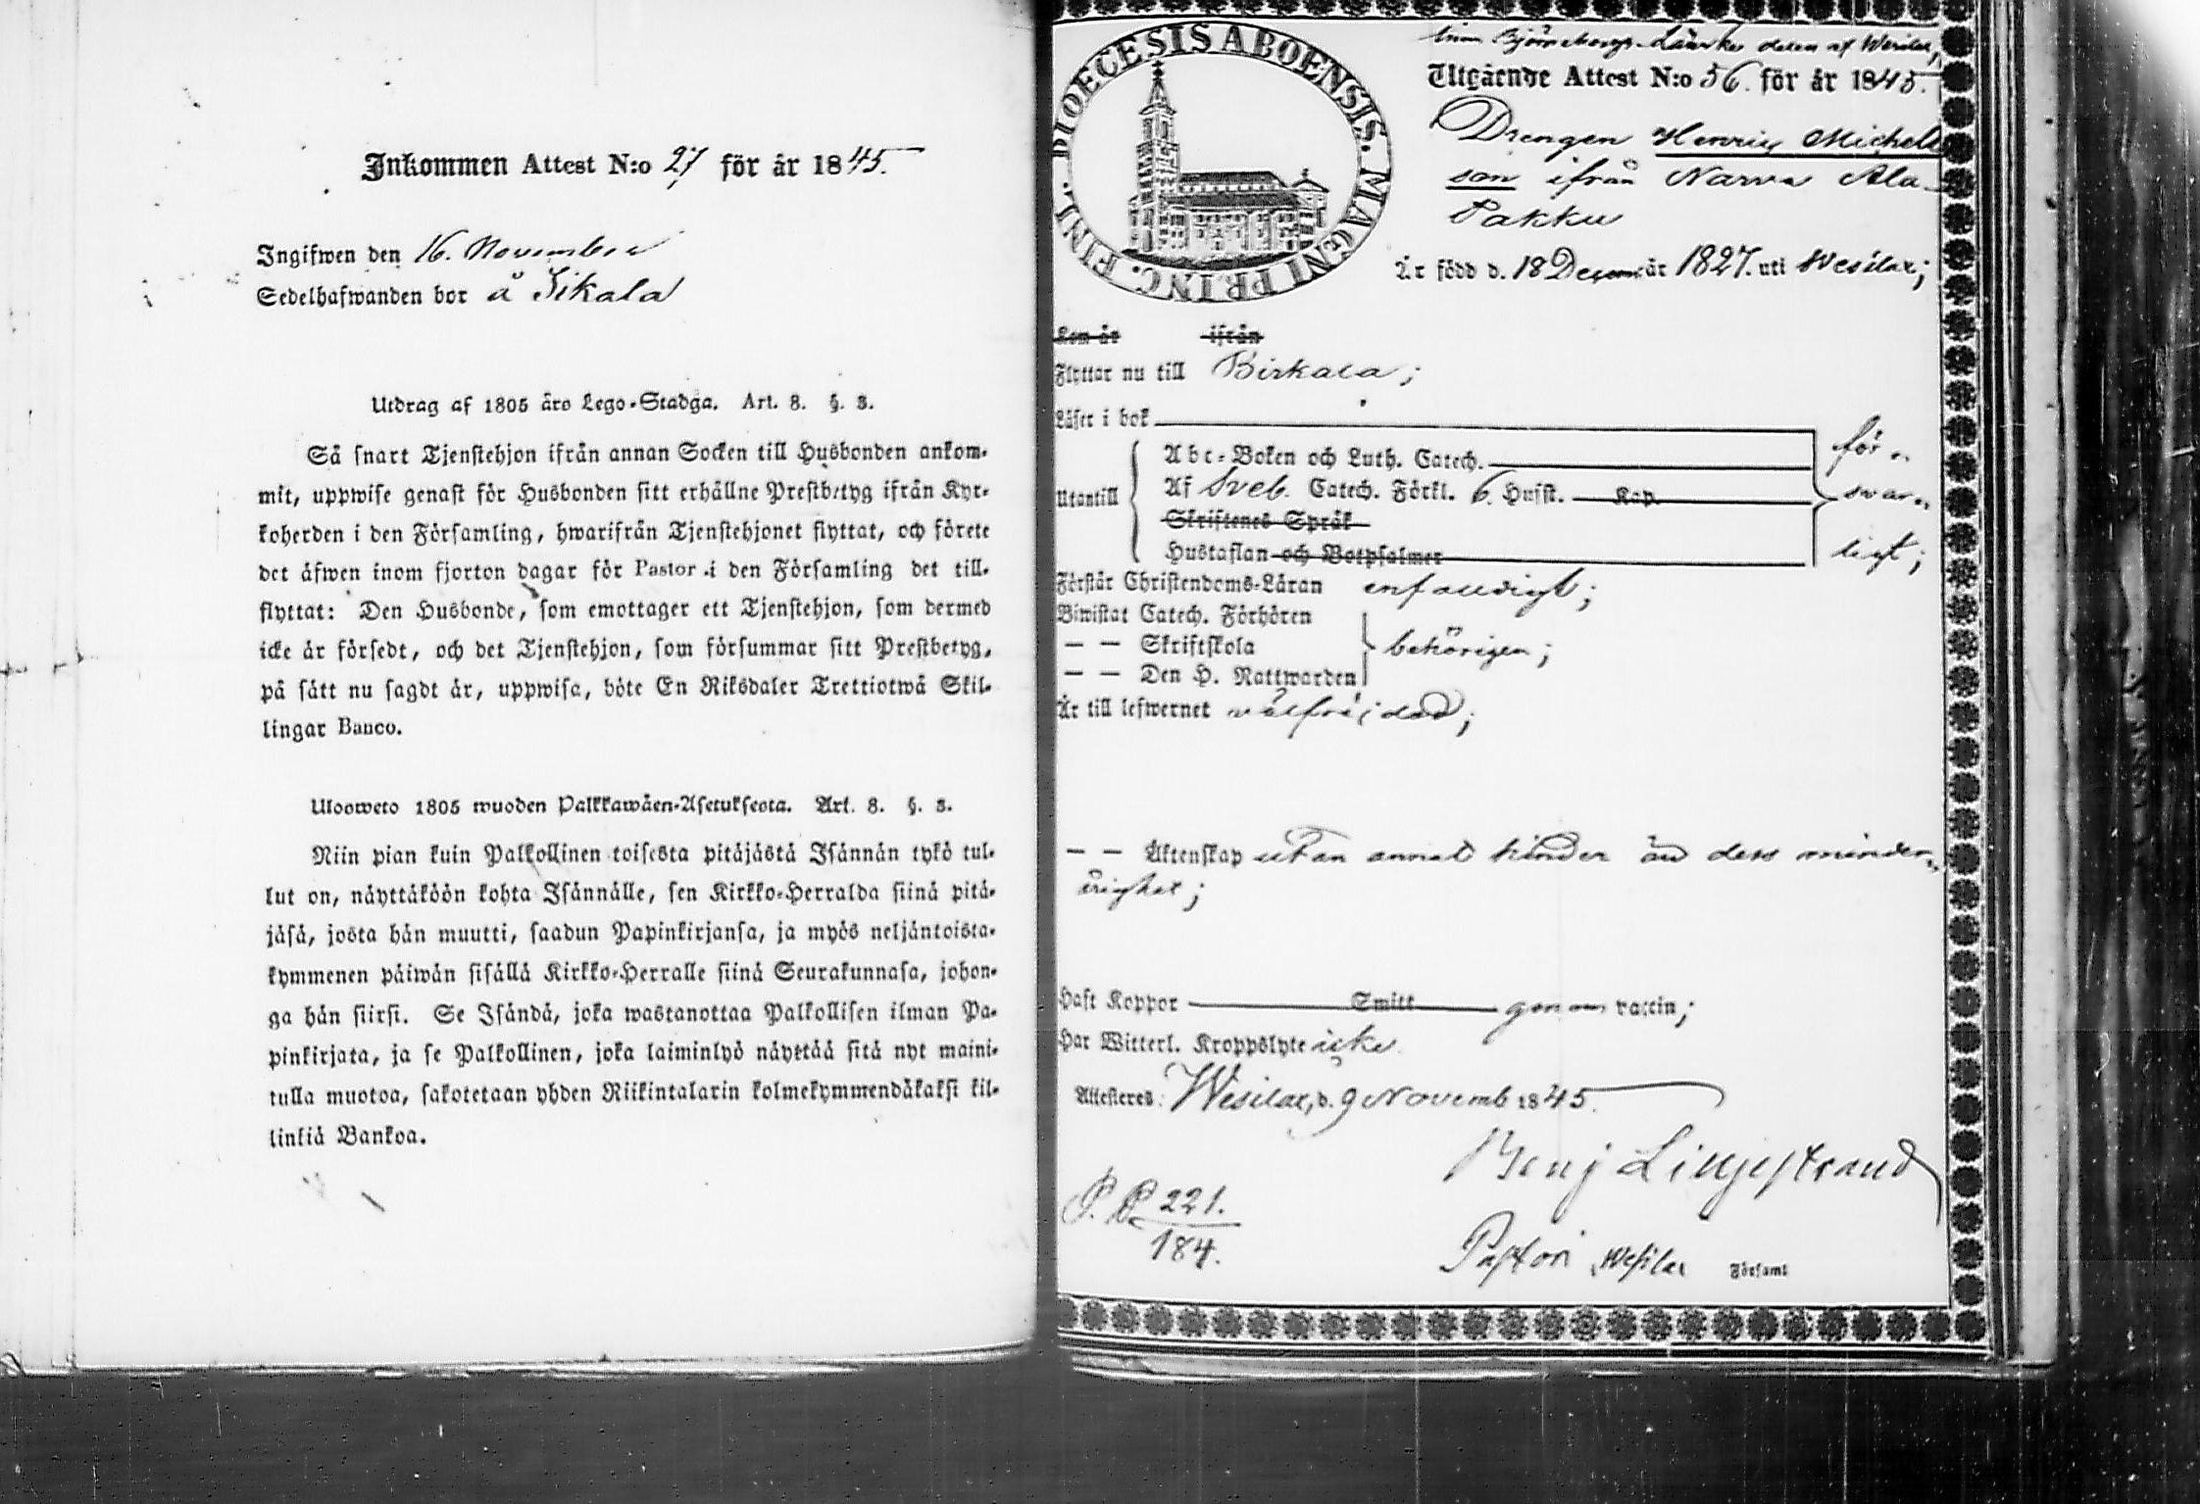 Inkommen Attest N:o 27 för år 1845.
Ingifwen den 16. November
Sedelhafwanden bor å Sikala
Utdrag af 1805 års Lego-Stadga. Art. 8. §. 3.
Så snart Tjenstehjon ifrån annan Socken till Husbonden ankom-
mit, uppwise genast för Husbonden sitt erhållne Prestbetyg ifrån Kyr-
koherden i den Församling, hwarifrån Tjenstehjonet flyttat, och förete
det äfwen inom fjorton dagar för Pastor i den Församling det till-
flyttat: Den Husbonde, som emottager ett Tjenstehjon, som dermed
icke är försedt, och det Tjenstehjon, som försummar sitt Prestbetyg,
på sätt nu sagdt är, uppwisa, böte En Riksdaler Trettiotwå Skil-
lingar Banco.
Uloosweto 1805 wuoden Palkkawäen-Asetuksesta. Art. 8. §. 3.
Niin pian kuin Palkollinen toisesta pitäjästä Isännän tykö tul-
lut on, näyttäköön kohta Isännälle, sen Kirkko-Herralda siinä pitä-
jäsä, josta hän muutti, saadun Papinkirjansa, ja myös neljäntoista-
kymmenen päiwän sisällä Kirkko-Herralle siinä Seurakunnasa, johon-
ga hän siirsi. Se Isändä, joka wastanottaa Palkollisen ilman Pa-
pinkirjata, ja se Palkollinen, joka laiminlyö näyttää sitä nyt maini-
tulla muotoa, sakotetaan yhden Riikintalarin kolmekymmendäkaksi kil-
linkiä Bankoa.
DIOECESIS ABOENSIS. MAGNI PRINC. FINL.
inom Björneborgs Länks delen af Wesilax,
Utgående Attest N:o 56. för år 1845.
Drengen Henric Michels
son ifrån Narwa Ala-
Pakku
Är född d. 18 Decem år 1827. uti Wesilax;
Kom år ifrån
Flyttar nu till Birkala;
Läser i bok
Abc-Boken och Luth. Catech.
Utantill
Af Sveb. Catech. Förkl. 6. Hufst. Kap.
Skriftenes Språk
Hustaflan och Botpsalmer
för-
swar-
ligt;
Förstår Christendoms-Läran enfaldigt;
Biwistat Catech. Förhören
— — Skriftskola behörigen;
— — Den H. Nattwarden
Är till lefwernet välfrejdad;
— — Äktenskap utan annat hinder än dess minder-
årighet;
Haft Koppor Smitt genom vaccin;
Har Witterl. Kroppslyte icke
Attesteres: Wesilax, d. 9 Novemb 1845.
Benj Liljestrand
P. B. 221.
184.
Pastor i Wesilax Församl